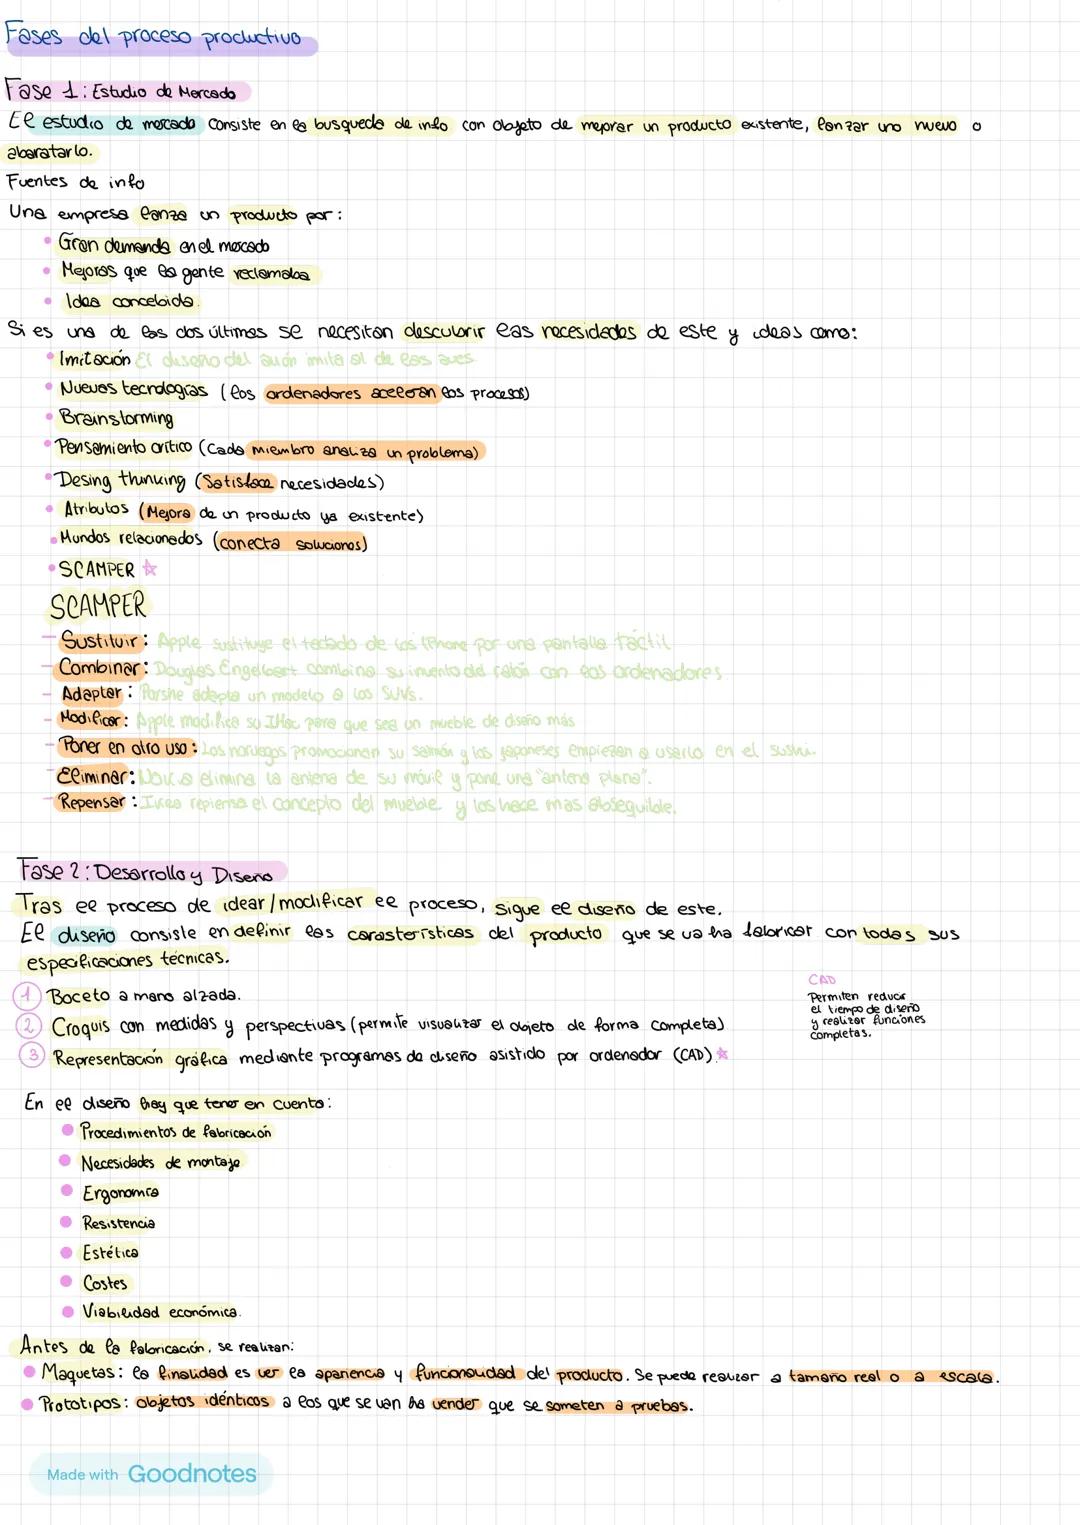 Fases del proceso productivo
Fase 1: Estudio de Mercado
El estudio de mercado consiste en la busqueda de info con objeto de mejorar un producto existente, lanzar uno nuevo o
abaratarlo.
Fuentes de info
Una empresa lanza un producto por:
• Gran demanda en el mercado
• Mejoras que la gente reclamaba
• Idea concebida.
Si es una de las dos últimas se necesitan descubrir las necesidades de este y ideas como:
• Imitación El diseño del avión imita al de las aves
• Nuevas tecnologías (los ordenadores aceleran los procesos)
• Brainstorming
• Pensamiento crítico (Cada miembro analiza un problema)
• Desing thinking (Satisface necesidades)
• Atributos (Mejora de un producto ya existente)
• Mundos relacionados (conecta soluciones)
• SCAMPER ☆
SCAMPER
- Sustituir: Apple sustituye el teclado de los iPhone por una pantalla táctil
- Combinar: Douglas Engelbart combina su invento del ratón con los ordenadores
- Adaptar: Porshe adapta un modelo a los SUVs.
- Modificar: Apple modifica su IMac para que sea un mueble de diseño más
- Poner en otro uso: Los noruegos promocionan su salmón y los japoneses empiezan a usarlo en el sushi.
- Eliminar: Nokia elimina la antena de su móvil y pone una "antena plana".
- Repensar: Ikea repiensa el concepto del mueble y los hace mas absequible.
Fase 2: Desarrollo y Diseño
Tras el proceso de idear/modificar el proceso, sigue el diseño de este.
El diseño consiste en definir las carasterísticas del producto que se va ha fabricar con todas sus
especificaciones técnicas.
① Boceto a mano alzada.
② Croquis con medidas y perspectivas (permite visualizar el objeto de forma completa)
③ Representación gráfica mediante programas de diseño asistido por ordenador (CAD).☆
CAD
Permiten reducir
el tiempo de diseño
y realizar funciones
completas.
En el diseño hay que tener en cuenta:
• Procedimientos de fabricación
• Necesidades de montaje
• Ergonomía
• Resistencia
• Estética
• Costes
• Viabilidad económica.
Antes de la fabricación, se realizan:
• Maquetas: la finalidad es ver la apariencia y funcionalidad del producto. Se puede realizar a tamaño real o a escala.
• Prototipos: objetos idénticos a los que se van ha vender que se someten a pruebas.
Made with Goodnotes